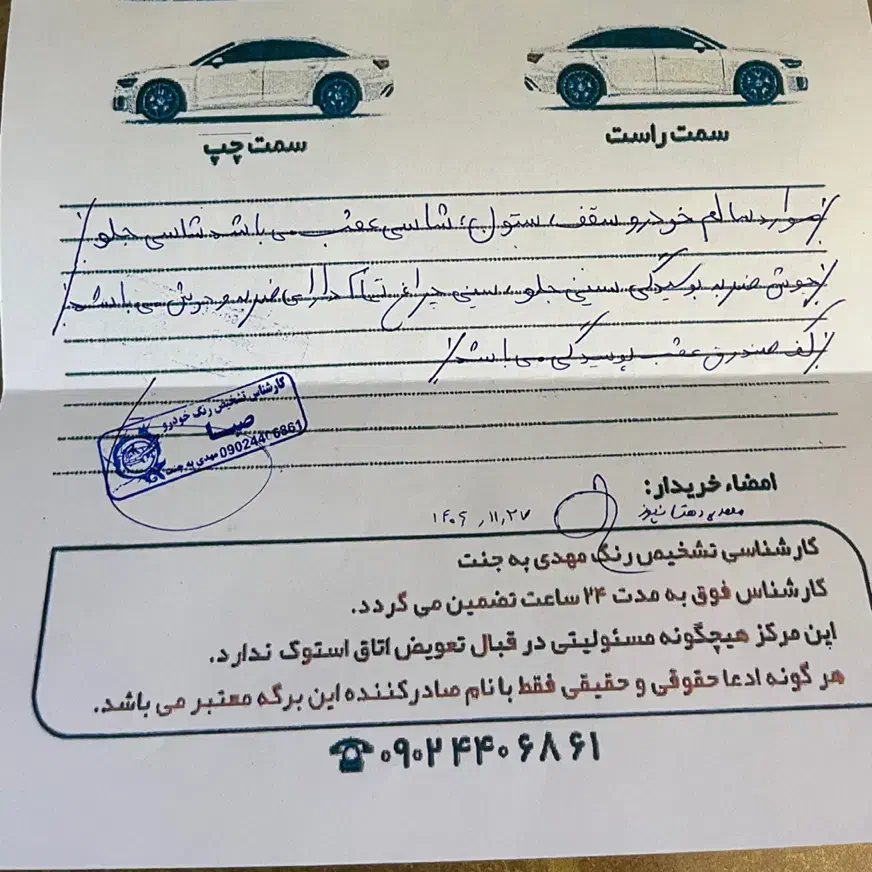 سمت چپ
سمت راست
/موارد سالم خودرو سقف، ستون، شاسی عقب می باشد شاسی جلو/
/جوش ضربه پوسیدگی سینی جلو، سینی چراغ تماما دارای ضربه و جوش می باشد/
/کف صندوق عقب پوسیدگی می باشد/
کارشناس تشخیص رنگ خودرو
صبا
09024406861 مهدی به جنت
امضاء خریدار:
۱۴۰۴,۱۱,۲۷
کارشناسی تشخیص رنگ مهدی به جنت
کارشناس فوق به مدت ۲۴ ساعت تضمین می گردد.
این مرکز هیچگونه مسئولیتی در قبال تعویض اتاق استوک ندارد.
هر گونه ادعا حقوقی و حقیقی فقط با نام صادرکننده این برگه معتبر می باشد.
۰۹۰۲۴۴۰۶۸۶۱